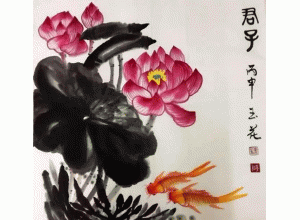 君子
丙申 玉花